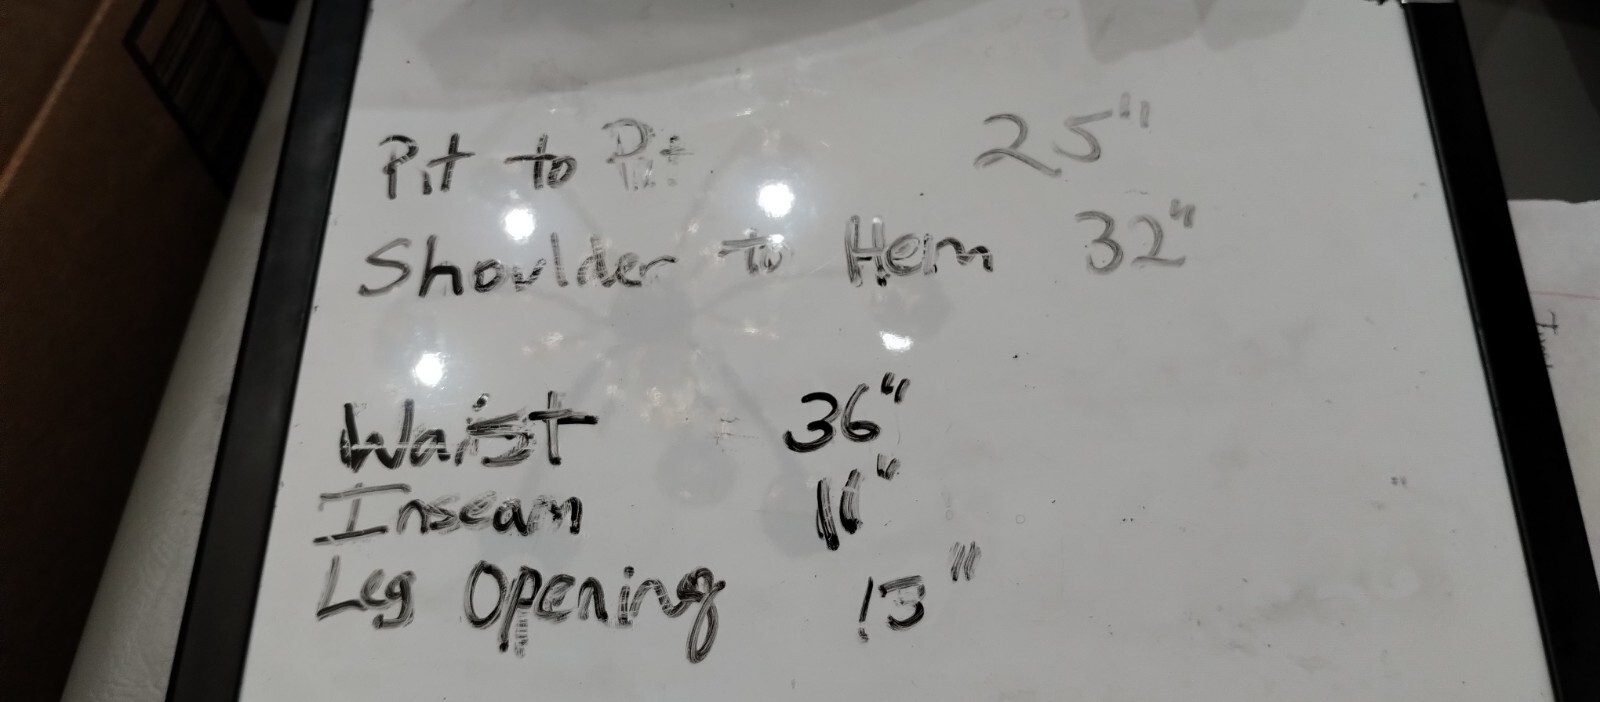 Pit to Pit 25"
Shoulder to Hem 32"
Waist 36"
Inseam 11"
Leg Opening 13"